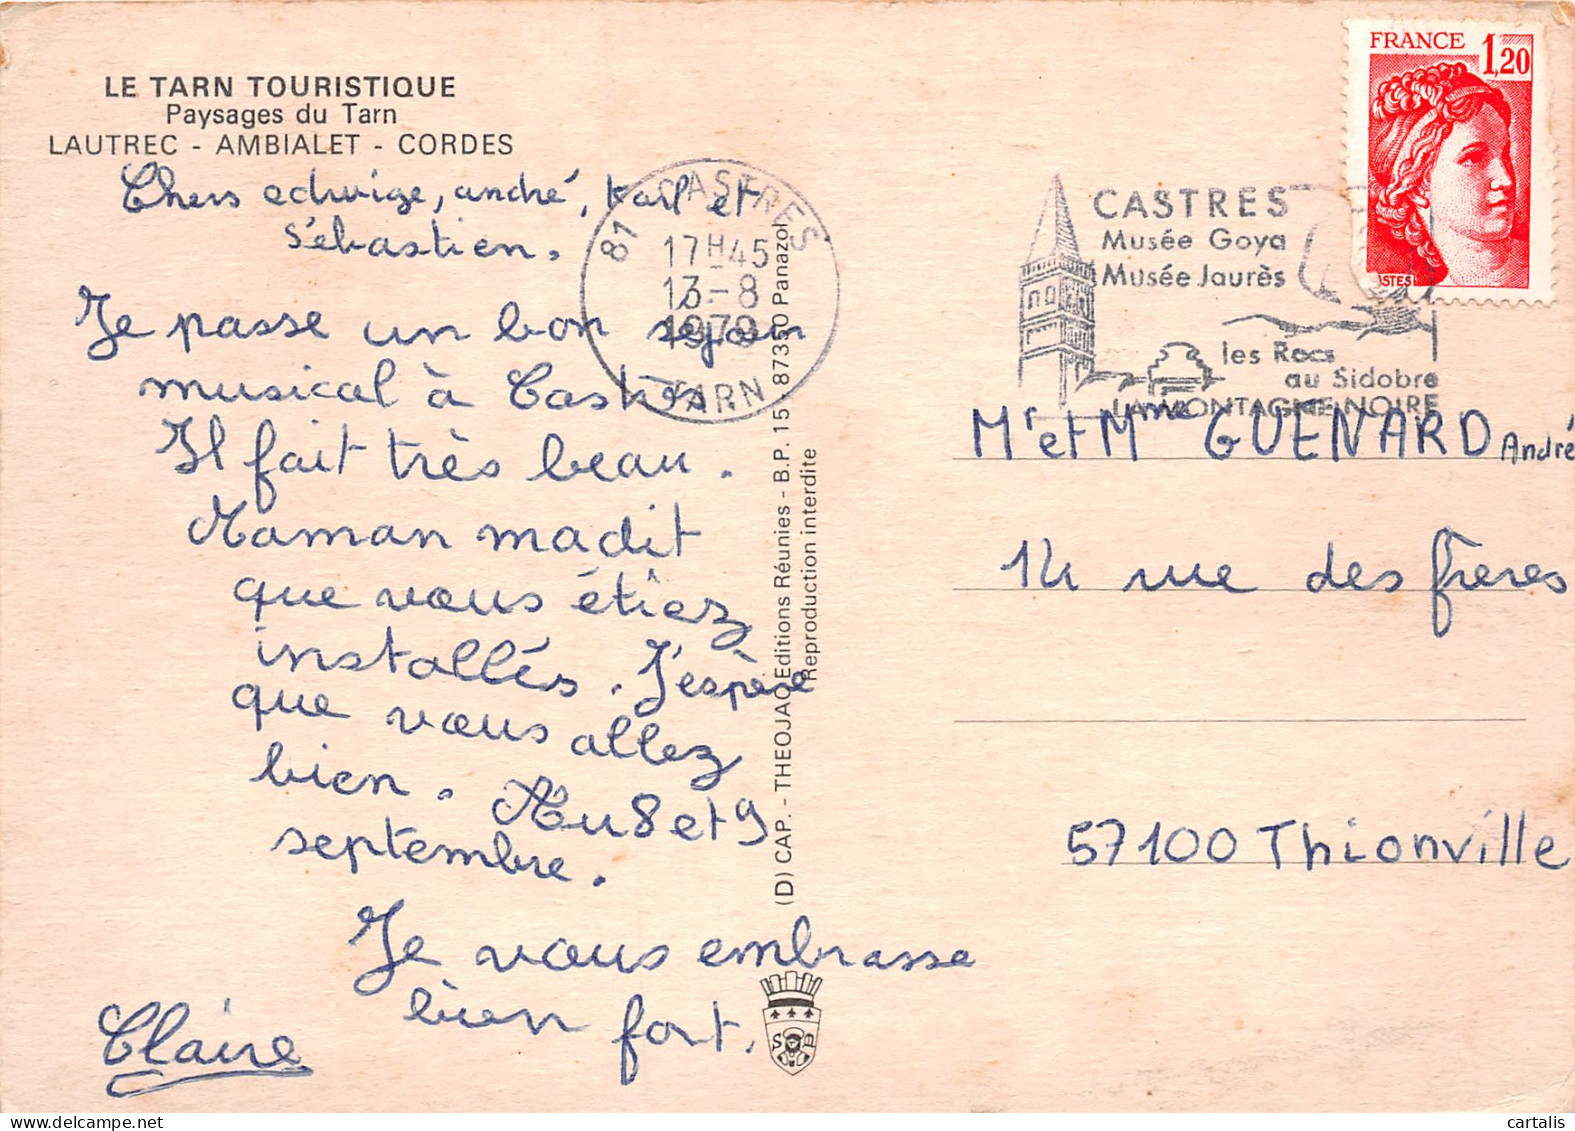 LE TARN TOURISTIQUE
Paysages du Tarn
LAUTREC - AMBIALET - CORDES
Chers edwige, andré, Karl et
Sébastien.
Je passe un bon sejour
musical à Castres.
Il fait très beau.
Maman m'a dit
que vous étiez
installés. J'espère
que vous allez
bien. Au 8 et 9
septembre.
Je vous embrasse
bien fort.
Claire
81 CASTRES
17H45
13-8
1979
TARN
(D) CAP. - THEOJAC Editions Réunies - B.P. 15 - 87350 Panazol
Reproduction interdite
S B
FRANCE 1,20
CASTRES
Musée Goya
Musée Jaurès
les Rocs
au Sidobre
LA MONTAGNE NOIRE
Mr et Mme GUENARD André
14 rue des frères
57100 Thionville
cartalis.com